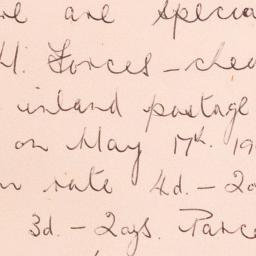 are specia
Forces - chea
inland postage
on May 17th. 19
rate 4d. - 2o
3d. - 2ozs. Parce